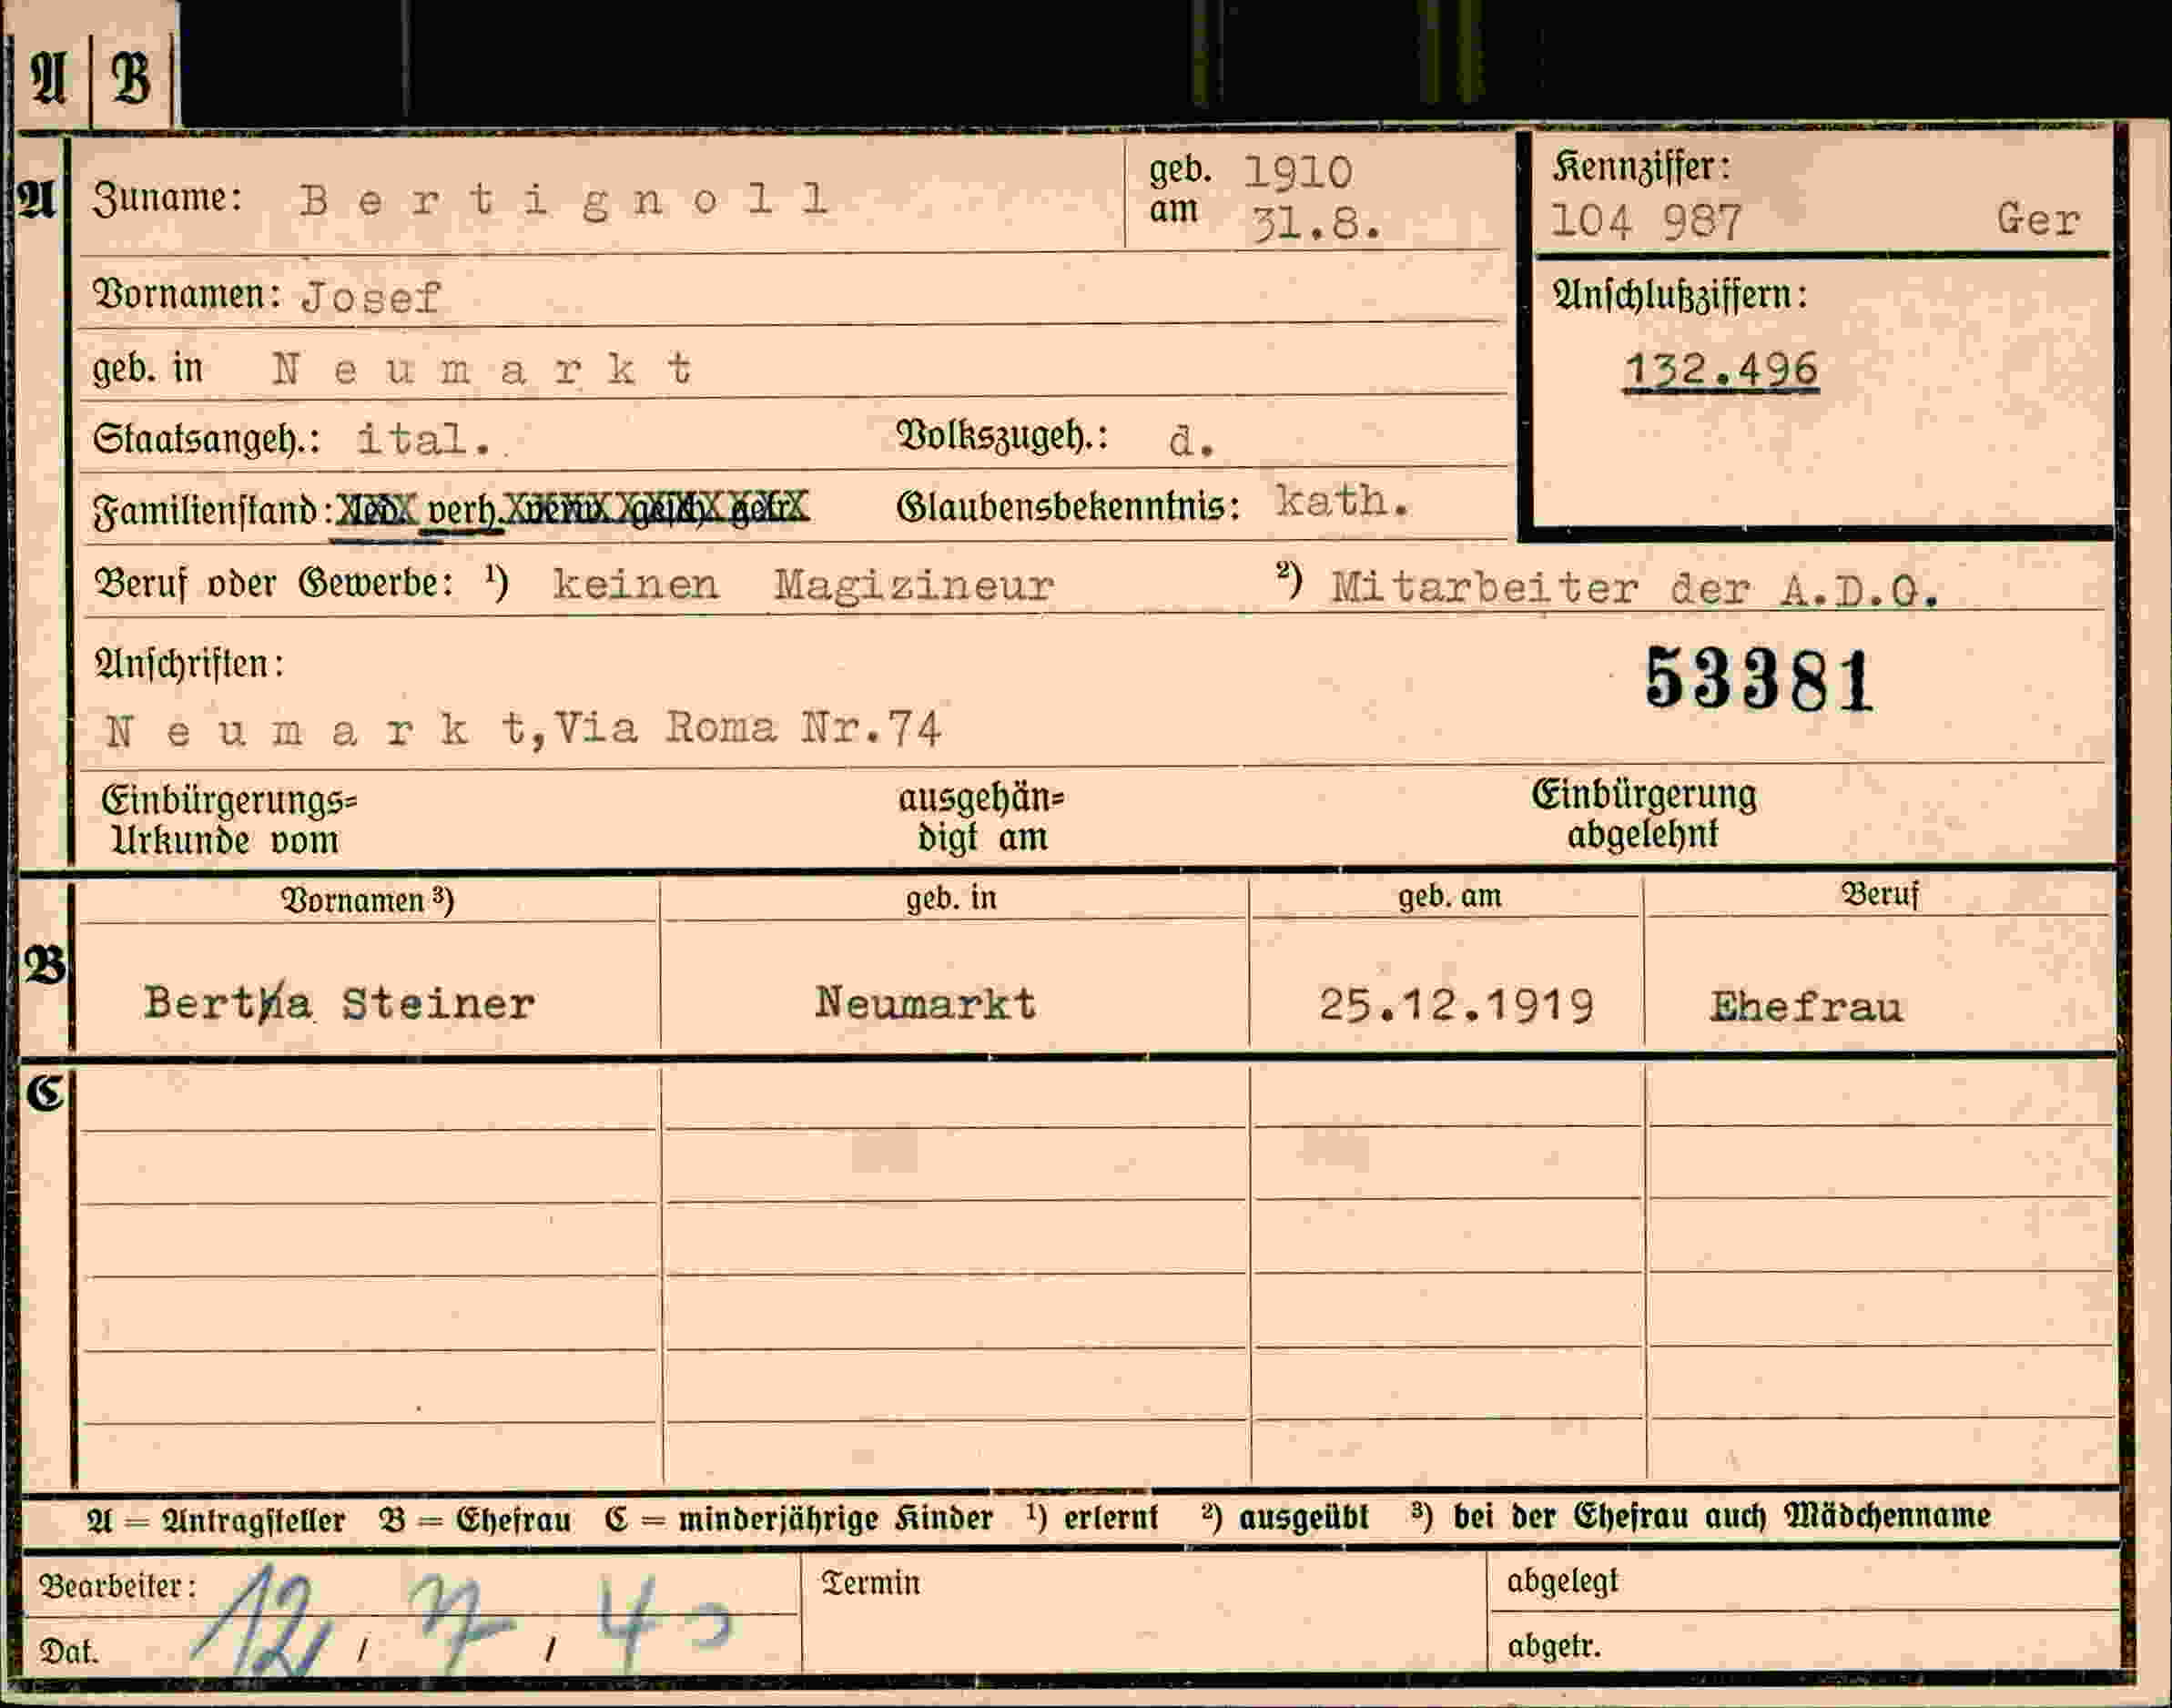 A B
A Zuname: Bertignoll geb. am 1910 31.8. Kennziffer: 104 987 Ger
Vornamen: Josef Anschlußziffern:
geb. in Neumarkt 132.496
Staatsangeh.: ital. Volkszugeh.: d.
Familienstand: led. verh. verw. gesch. getr. Glaubensbekenntnis: kath.
Beruf oder Gewerbe: ¹) keinen Magizineur ²) Mitarbeiter der A.D.O.
Anschriften: 53381
Neumarkt, Via Roma Nr.74
Einbürgerungs= ausgehän= Einbürgerung
Urkunde vom digt am abgelehnt
Vornamen ³) geb. in geb. am Beruf
B Berta Steiner Neumarkt 25.12.1919 Ehefrau
C
A = Antragsteller B = Ehefrau C = minderjährige Kinder ¹) erlernt ²) ausgeübt ³) bei der Ehefrau auch Mädchenname
Bearbeiter: Termin abgelegt
Dat. 12 / 7 / 40 abgetr.